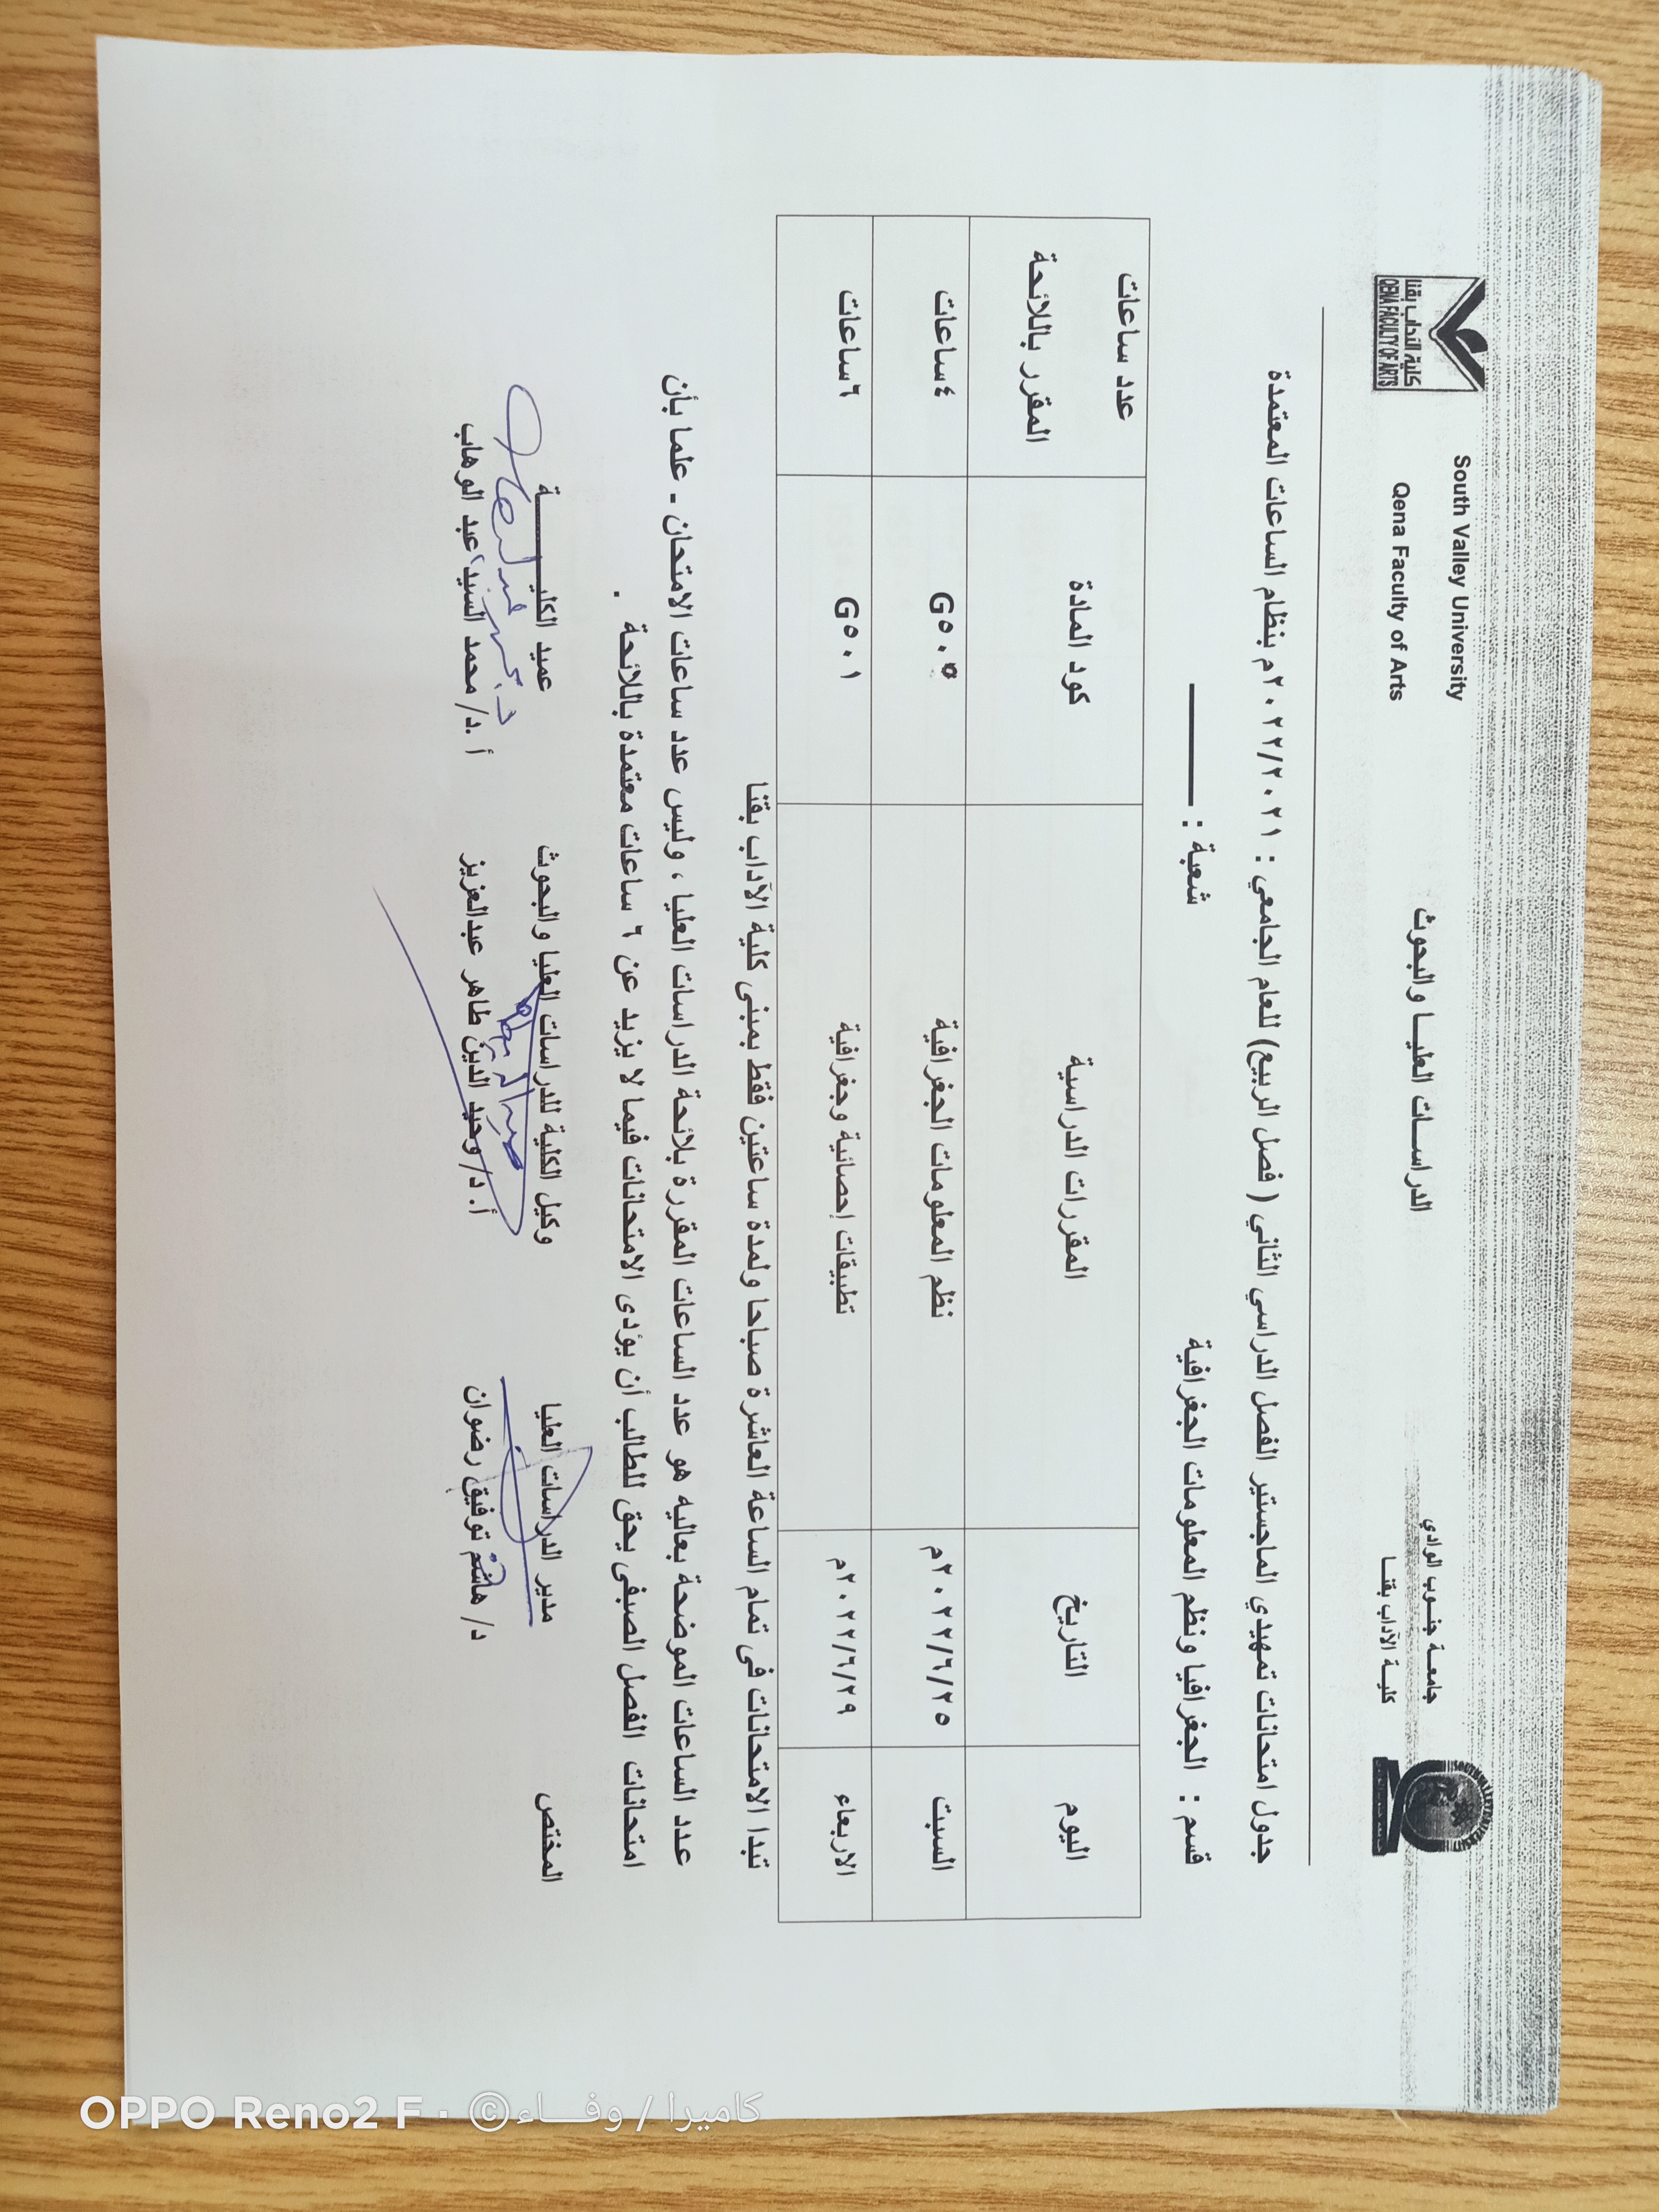 South Valley University
Qena Faculty of Arts
الدراسات العليا والبحوث
جامعة جنوب الوادي
كلية الآداب بقنا
كلية الآداب بقنا
QENA FACULTY OF ARTS
جدول امتحانات تمهيدي الماجستير الفصل الدراسي الثاني ( فصل الربيع) للعام الجامعي : ٢٠٢٢/٢٠٢١م بنظام الساعات المعتمدة
قسم : الجغرافيا ونظم المعلومات الجغرافية شعبة :
اليوم التاريخ المقررات الدراسية كود المادة عدد ساعات المقرر باللائحة
السبت ٢٠٢٢/٦/٢٥م نظم المعلومات الجغرافية G٥٠٥ ٤ساعات
الاربعاء ٢٠٢٢/٦/٢٩م تطبيقات إحصائية وجغرافية G٥٠١ ٦ساعات
تبدا الامتحانات فى تمام الساعة العاشرة صباحا ولمدة ساعتين فقط بمبنى كلية الآداب بقنا
عدد الساعات الموضحة بعاليه هو عدد الساعات المقررة بلائحة الدراسات العليا ، وليس عدد ساعات الامتحان - علما بأن
امتحانات الفصل الصيفى يحق للطالب أن يؤدى الامتحانات فيما لا يزيد عن ٦ ساعات معتمدة باللائحة .
المختص مدير الدراسات العليا وكيل الكلية للدراسات العليا والبحوث عميد الكليـــــــة
د/ هاشم توفيق رضوان أ. د/ وحيد الدين طاهر عبدالعزيز أ .د/ محمد السيد عبد الوهاب
OPPO Reno2 F · ©كاميرا / وفـــاء